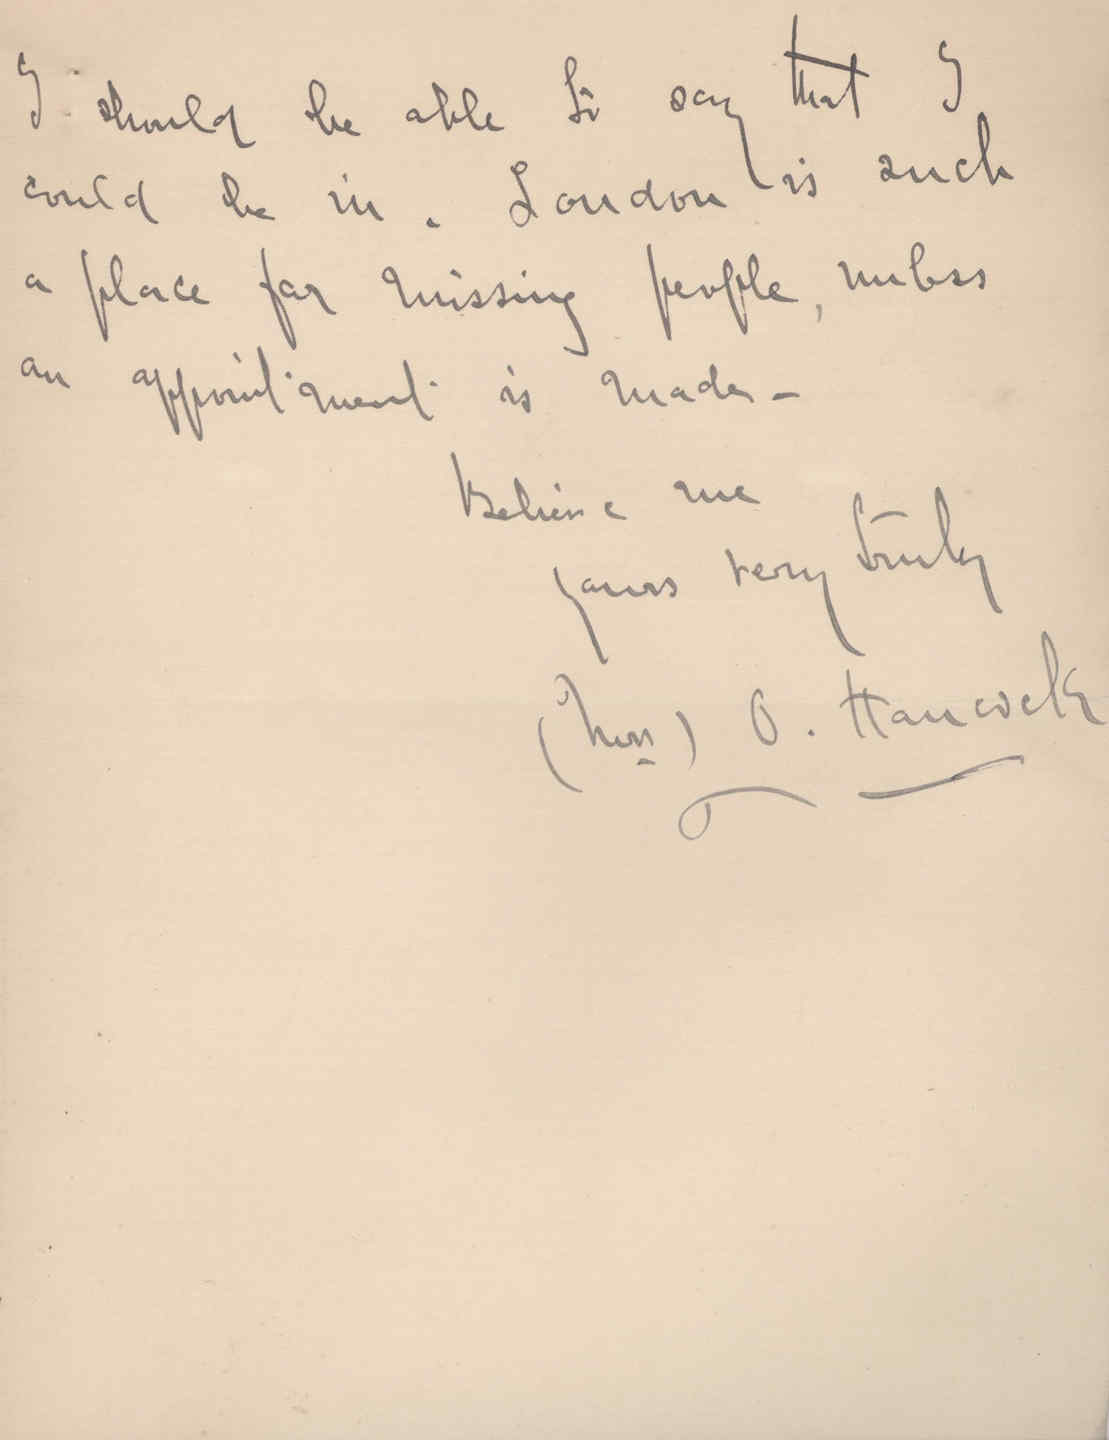 I should be able to say that I
could be in. London is such
a place for missing people, unless
an appointment is made –
Believe me
yours very truly
(Mrs) O. Hancock